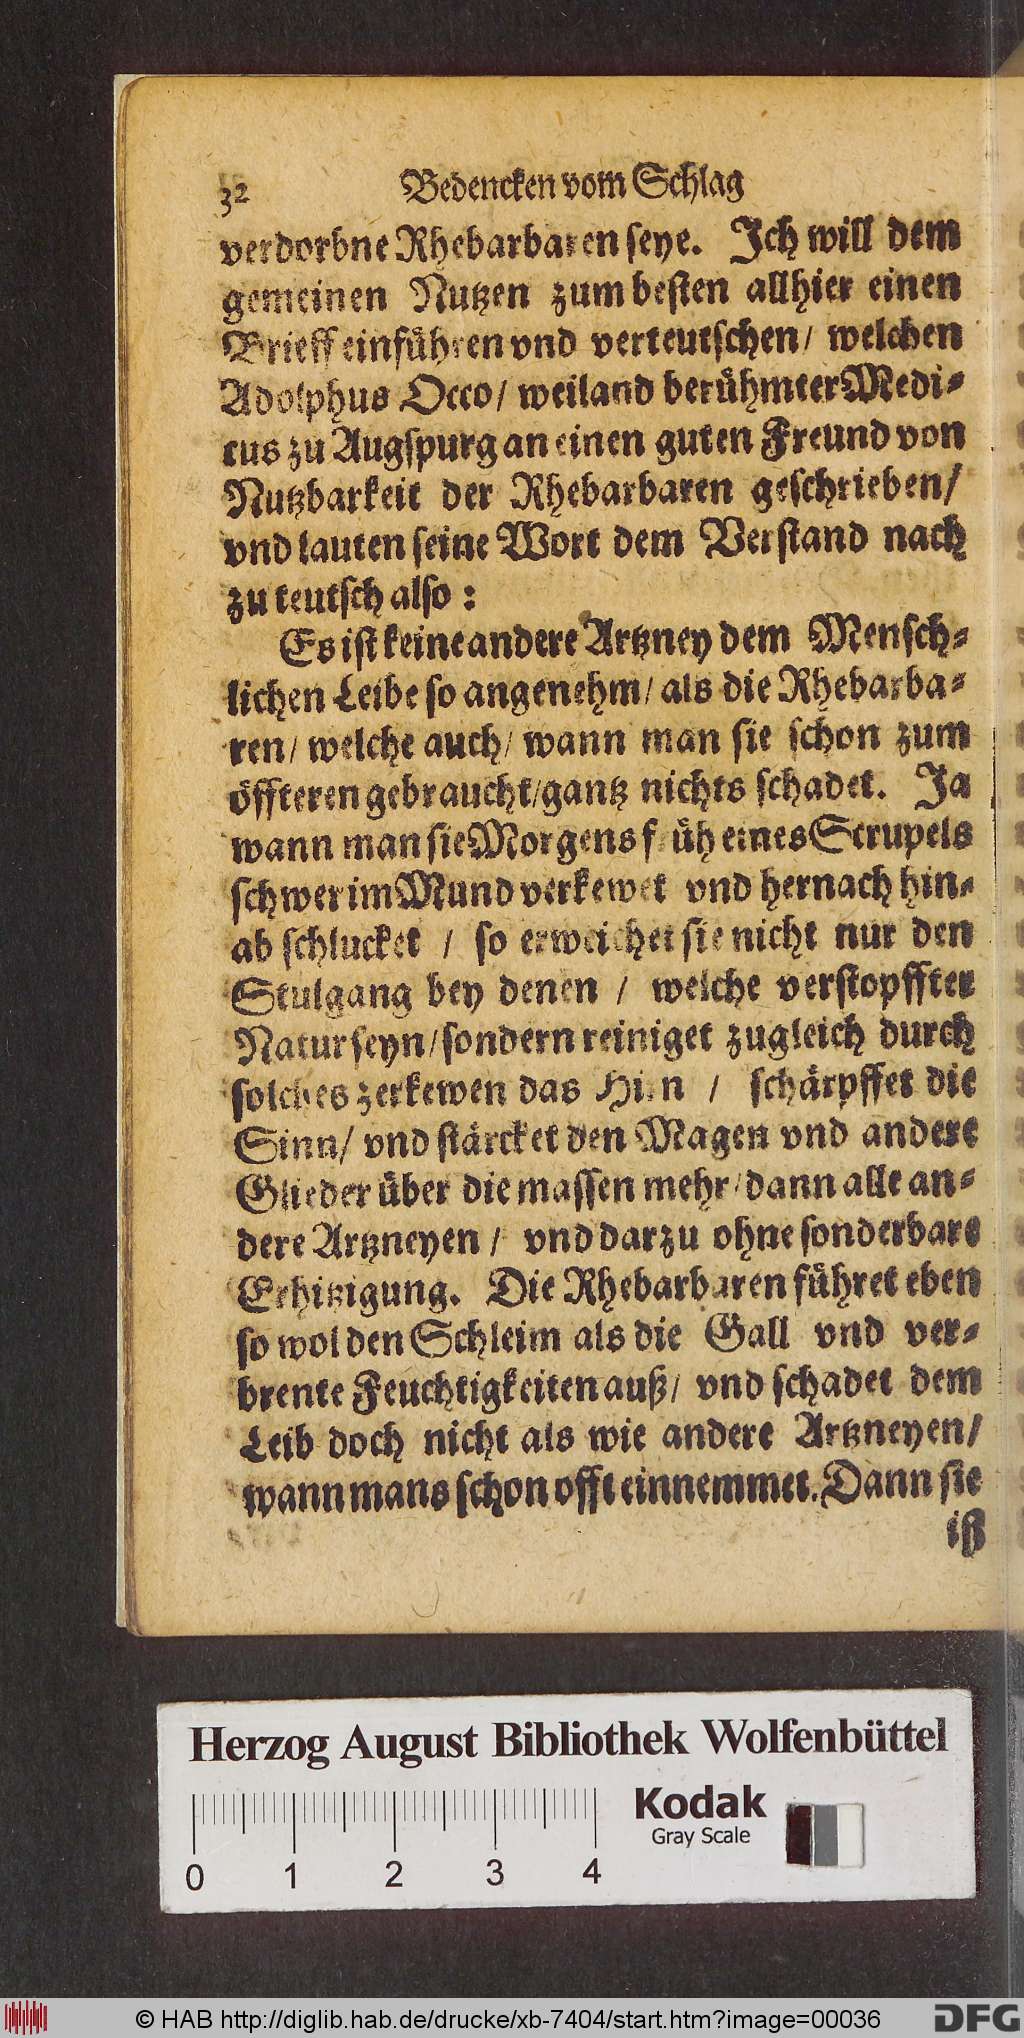 32 Bedencken vom Schlag
verdorbne Rhebarbaren seye. Jch will dem
gemeinen Nutzen zum besten allhier einen
Brieff einführen vnd verteutschen/ welchen
Adolphus Occo/ weiland berühmter Medi-
cus zu Augspurg an einen guten Freund von
Nutzbarkeit der Rhebarbaren geschrieben/
vnd lauten seine Wort dem Verstand nach
zu teutsch also:
Es ist keine andere Artzney dem Mensch-
lichen Leibe so angenehm/ als die Rhebarba-
ren/ welche auch/ wann man sie schon zum
öffteren gebraucht/ gantz nichts schadet. Ja
wann man sie Morgens früh eines Scrupels
schwer im Mund verkewet vnd hernach hin-
ab schlucket / so erweichet sie nicht nur den
Stulgang bey denen / welche verstopffter
Natur seyn/ sondern reiniget zugleich durch
solches zerkewen das Hirn / schärpffet die
Sinn/ vnd stärcket den Magen vnd andere
Glieder über die massen mehr/ dann alle an-
dere Artzneyen / vnd darzu ohne sonderbare
Erhitzigung. Die Rhebarbaren führet eben
so wol den Schleim als die Gall vnd ver-
brente Feuchtigkeiten auß/ vnd schadet dem
Leib doch nicht als wie andere Artzneyen/
wann mans schon offt einnemmet. Dann sie
iß
Herzog August Bibliothek Wolfenbüttel
Kodak
Gray Scale
0 1 2 3 4
© HAB http://diglib.hab.de/drucke/xb-7404/start.htm?image=00036
DFG